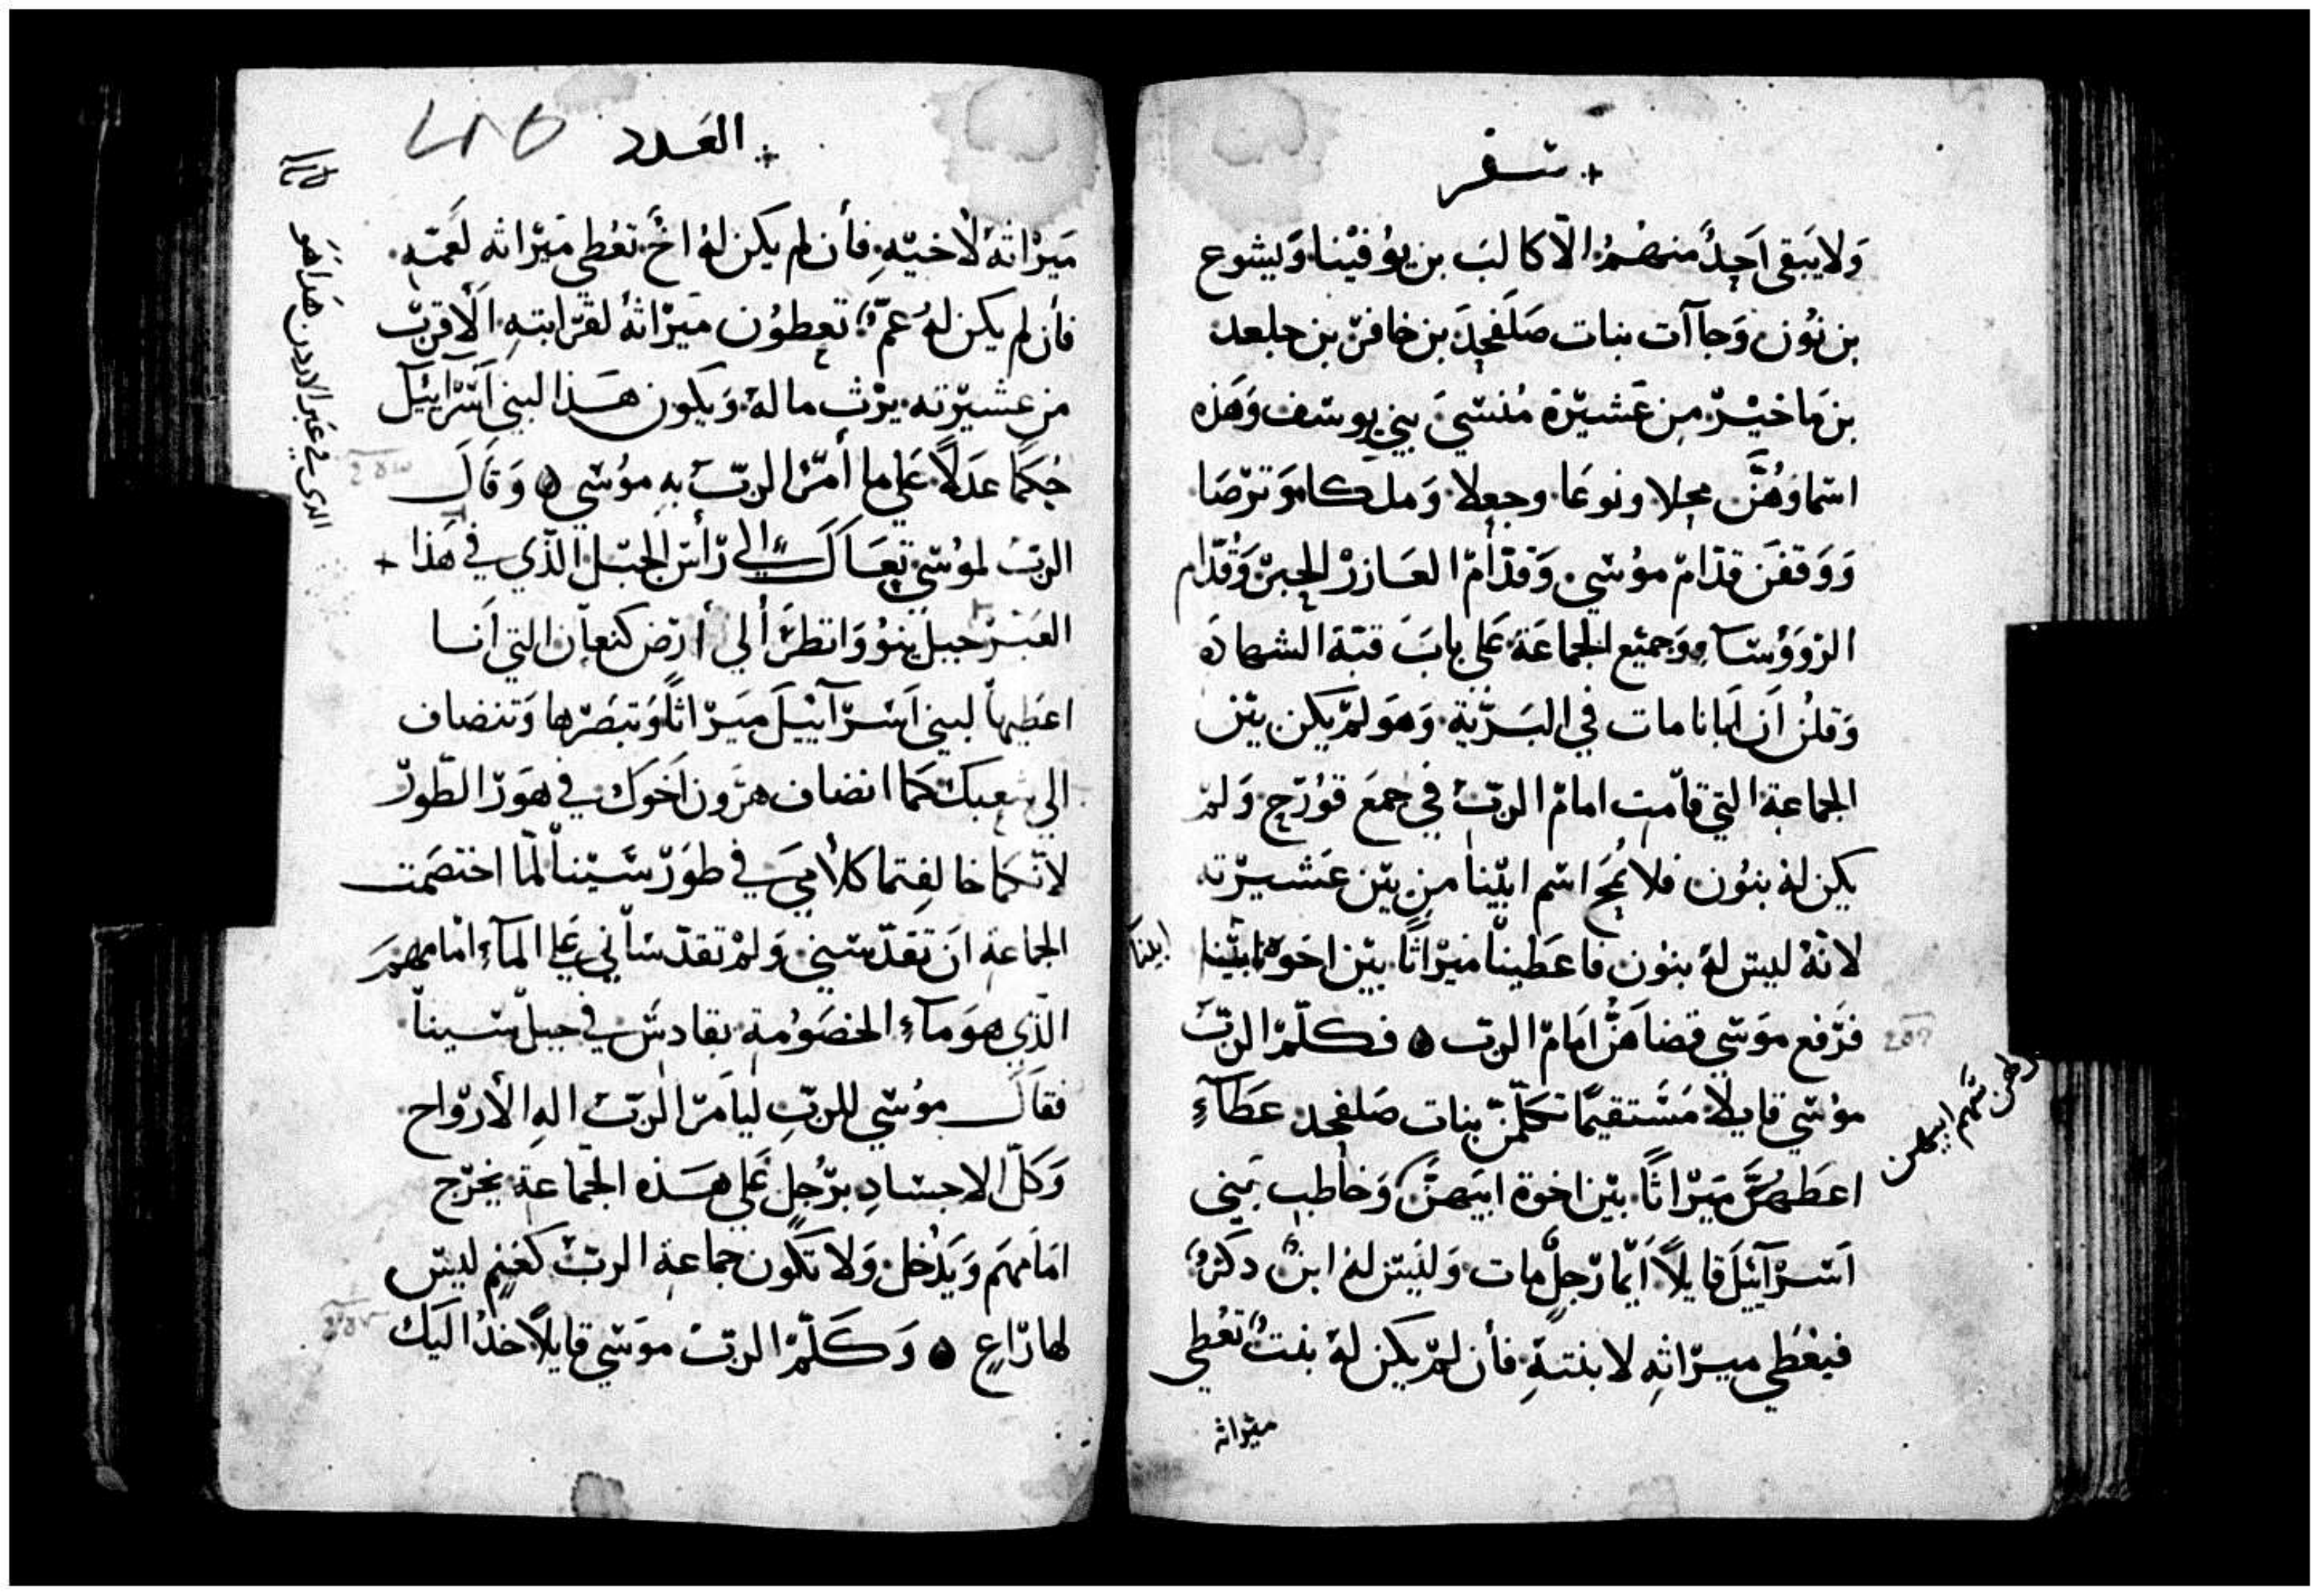 سفر
وَلا يَبقى اَحِدٌ منهُمُ الّا كالبَ بن يوُفيْنا وَيشوع
بن نوُن وَجاآت بنات صَلَفحِدَ بن خافرّ بن جلعد
بن مَاخيْرّ مِن عَشيْرّة مُنسّيَ بني يوسف وَهَذه
اسّماوهُنَّ محلا ونوعَا وحِعلا وَملكا وَترّصَا
وَوَقفنَ قدّامّ موُسّي وَقدّأمّ العَازرْ الحِبرّ وَقُدّام
الرّوَؤُسّاءِ وَجميّع الجماعَة عَلي بابَ قبّة الشهادَه
وَقلُن اَن اَبانا مات في البَرّيّة وَهوَ لمْ يكن بيّن
الجماعة التي قاّمت امامْ الربّ في جمعَ قوُرّح وَلمْ
يكن لهُ بنوُن فلا يُمحَ اسّم ابيّنا من بيّن عَشيرّته
لانّهُ ليسّ لهُ بنوُن فاعَطينْا ميْرّاثًا بيّن اخوَة ابيّنا
ابينا
فرّفع موَسّي قضاهَنَّ امَامّ الربّ ۞ فكلّمْ الربّ
موُسّي قايلًا مَسّتقيمًا تكلّمنّ بنات صَلفحد عَطآءِ
اعطَهُنَّ ميَرّاثًا بيّن اخوة ابيَهنَّ وَخاطب بَني
اَسّرآئيْلَ قايلًا اَيّما رّجلٌ مات وَليَسّ لهُ ابنٌ دكرٌ
فيعُطي ميرّاثهِ لابنتهِ فأن لمْ يكن لهُ بنتٌ تعُطي
ميّراثه
العَدد
ميَرْاثهُ لأخيّهِ فأن لم يكن لهُ اخٌ تعُطي ميَرّاثه لعَمّهِ
فأن لم يكن لهُ عمّ تعطوُن ميَرّاثهُ لقرّابتهِ الَأقربّ
من عشيرّته يرّث ما لهُ وَيكون هَذا لبني اَسّرآئيْل
حُكمًا عدَلًا عَلي ما أمَرّ الربّ بهِ موُسّي ۞ وَقَالَ
الربّ لموُسّي تعَالَ الي رّأسّ الجبَل الّذي في هَذا +
العَبْرّ جبل ينوُ وَانظرّ ألي أرّض كنعاَن التي اَنا
اعطَيها لبني اَسّرآئيْلَ ميَرّاثًا وَتبصَرّها وَتنضاف
الي شعبكَ كمَا انضاف هرّون اَخوَك في هوَرّ الطّورّ
لانّكما خالفتما كلأميَ في طوَرّ سّيناْ لمّا اختصَمت
الجماعة انَ تقدّسّني وَلمْ تقدّسّأني عَلي المآءِ امْامهمَ
الّذي هوَ مآءِ الخصَوُمة بقادسّ في جبل سّيناْ
فقاَلَ موُسّي للربّ ليأمَرّ الربّ الهِ الأرّواح
وَكلّ الاجسّادِ برّجُل عَلي هَذه الجمّاعةَ يخرّج
امَامَهم وَيَدُخل وَلا تكوُن جماعة الربّ كغَنمٍ ليسّ
لها رّاعٍ ۞ وَكَلّمْ الربّ موَسّي قايلًا خدُ اليَك
هَدا هَو
الدى في عَبر الاردن